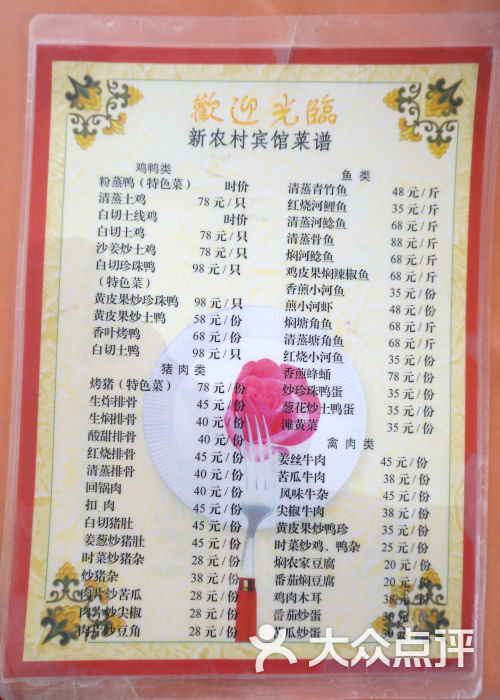 歡迎光臨
新农村宾馆菜谱
鸡鸭类
粉蒸鸭（特色菜） 时价
清蒸土鸡 78元/只
白切土线鸡 时价
白切土鸡 78元/只
沙姜炒土鸡 78元/只
白切珍珠鸭 98元/只
（特色菜）
黄皮果炒珍珠鸭 98元/只
黄皮果炒土鸭 58元/份
香叶烤鸭 68元/份
白切土鸭 98元/只
猪肉类
烤猪（特色菜） 78元/份
生炸排骨 45元/份
生焖排骨 40元/份
酸甜排骨 40元/份
红烧排骨 45元/份
清蒸排骨 40元/份
回锅肉 40元/份
扣肉 45元/份
白切猪肚 45元/份
姜葱炒猪肚 45元/份
时菜炒猪杂 28元/份
炒猪杂 38元/份
肉片炒苦瓜 28元/份
肉片炒尖椒 28元/份
肉片炒豆角 28元/份
鱼类
清蒸青竹鱼 48元/斤
红烧河鲤鱼 35元/斤
清蒸河鲶鱼 68元/斤
清蒸骨鱼 88元/斤
焖河鲶鱼 68元/斤
鸡皮果焖辣椒鱼 68元/斤
香煎小河鱼 35元/份
煎小河虾 48元/份
焖塘角鱼 68元/斤
清蒸塘角鱼 68元/斤
红烧小河鱼 35元/份
香煎蜂蛹 78元/份
炒珍珠鸭蛋 35元/份
葱花炒土鸭蛋 35元/份
滩黄菜 35元/份
禽肉类
姜丝牛肉 45元/份
苦瓜牛肉 38元/份
风味牛杂 45元/份
尖椒牛肉 38元/份
黄皮果炒鸭珍 35元/份
时菜炒鸡、鸭杂 25元/份
焖农家豆腐 20元/份
番茄焖豆腐 20元/份
鸡肉木耳 38元/份
番茄炒蛋 30元/份
苦瓜炒蛋 30
大众点评